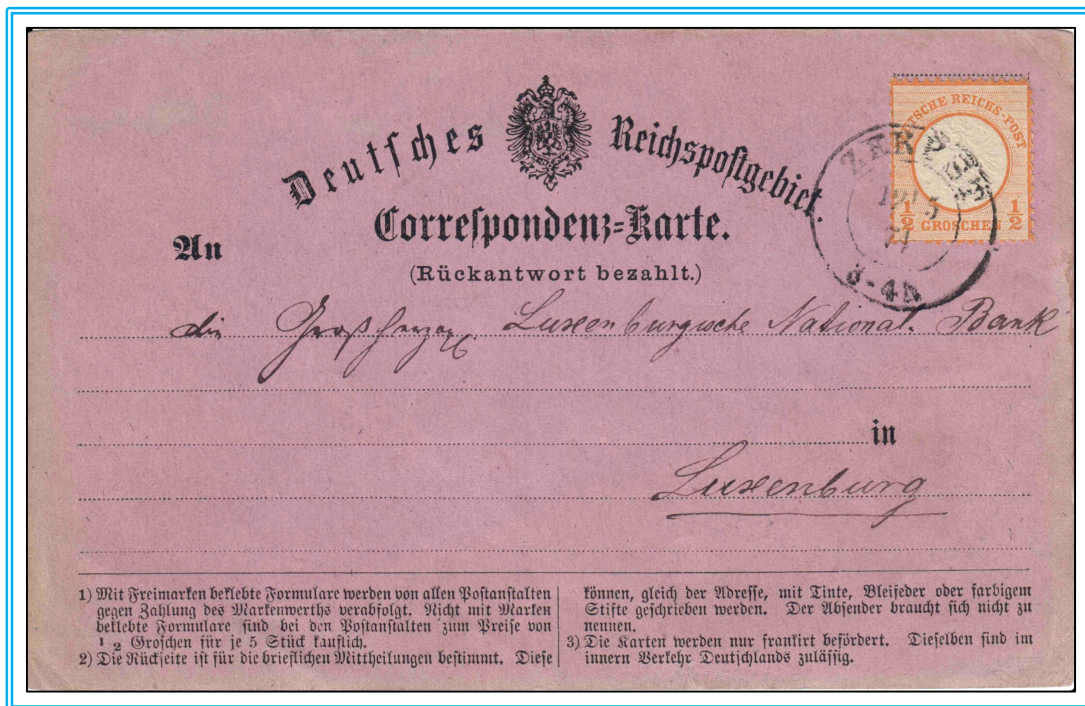 Deutsches Reichspostgebiet.
DEUTSCHE REICHS-POST
½ GROSCHEN ½
3-4N
Correspondenz=Karte.
An
(Rückantwort bezahlt.)
die Großherzogl. Luxenburgische National. Bank
in
Luxenburg
1) Mit Freimarken beklebte Formulare werden von allen Postanstalten
gegen Zahlung des Markenwerths verabfolgt. Nicht mit Marken
beklebte Formulare sind bei den Postanstalten zum Preise von
1/2 Groschen für je 5 Stück käuflich.
2) Die Rückseite ist für die brieflichen Mittheilungen bestimmt. Diese
können, gleich der Adresse, mit Tinte, Bleifeder oder farbigem
Stifte geschrieben werden. Der Absender braucht sich nicht zu
nennen.
3) Die Karten werden nur frankirt befördert. Dieselben sind im
innern Verkehr Deutschlands zulässig.